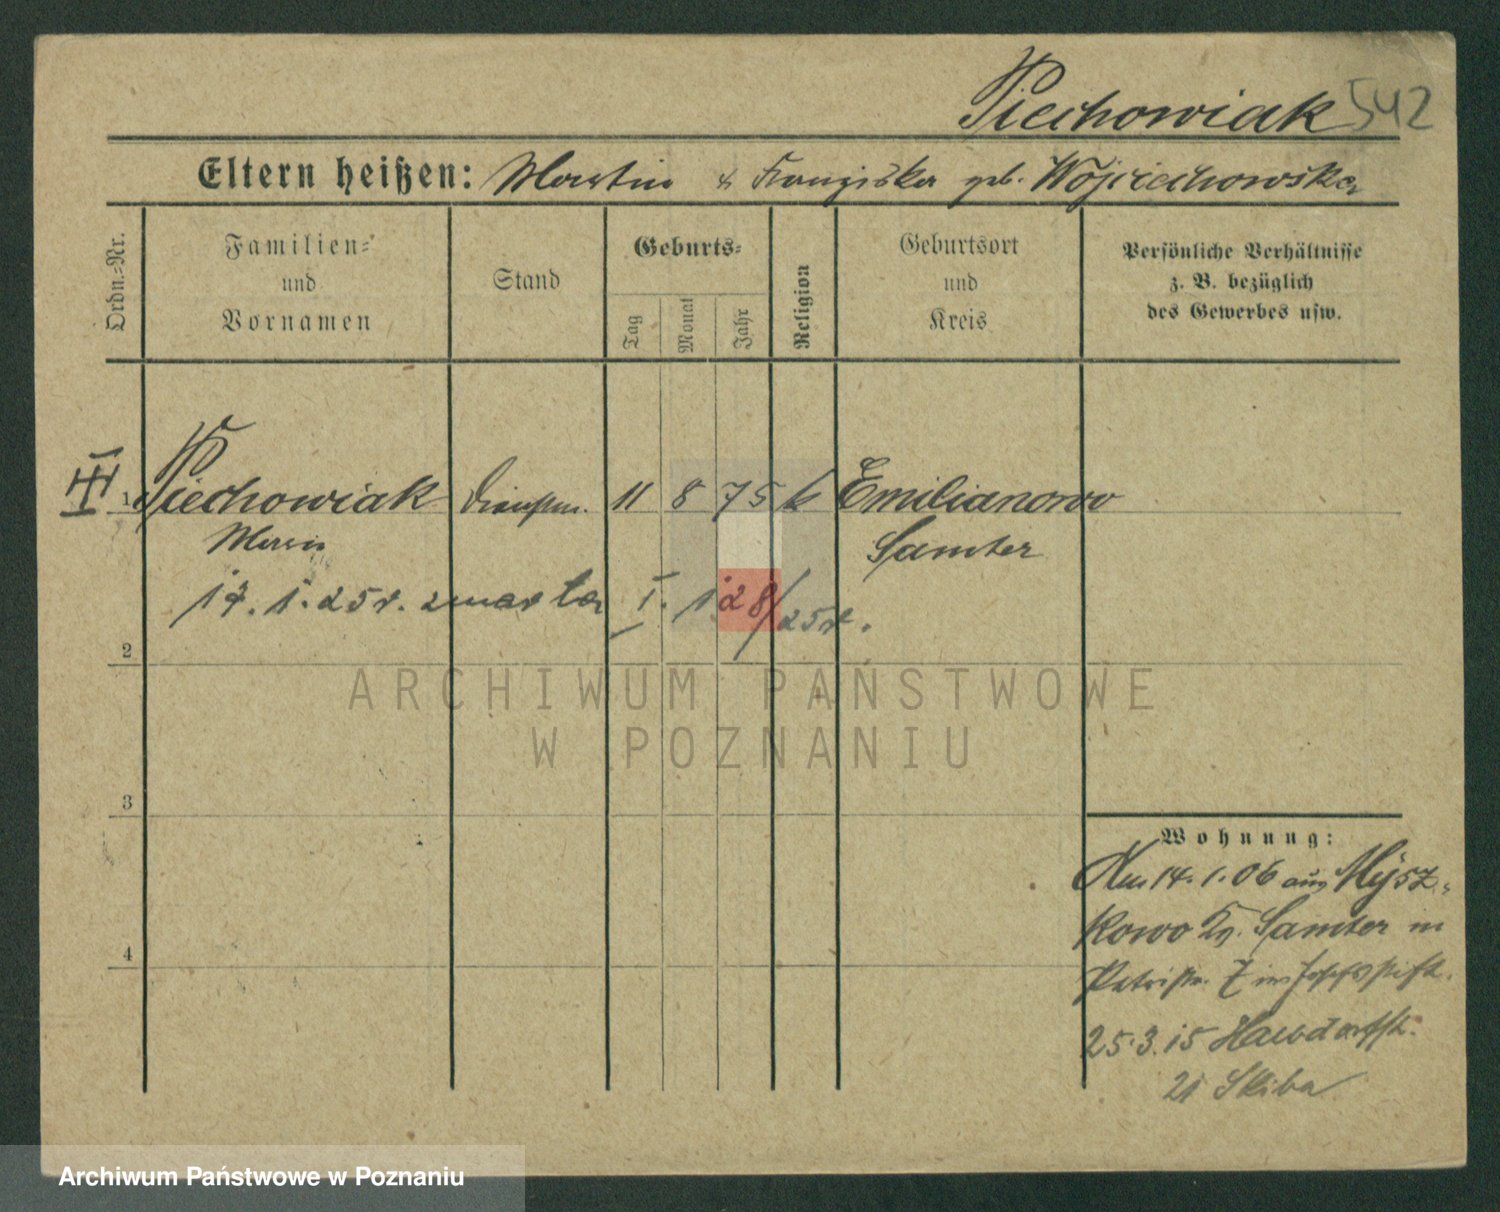 Piechowiak 542
Eltern heißen: Martin & Franziska geb. Wojciechowska
Ordn.-Nr.
Familien-
und
Vornamen
Stand
Geburts-
Tag
Monat
Jahr
Religion
Geburtsort
und
Kreis
Persönliche Verhältnisse
z. B. bezüglich
des Gewerbes usw.
1 Piechowiak 11 8 75 k Emilianowo
Samter
17. 1. 25 r. zmarła I. 128/25 r.
2
3
4
Wohnung:
14. 1. 06 aus Mysz-
kowo Kr. Samter in
7 im Josefsstift.
25.3.15
21 Skiba
ARCHIWUM PAŃSTWOWE
W POZNANIU
Archiwum Państwowe w Poznaniu